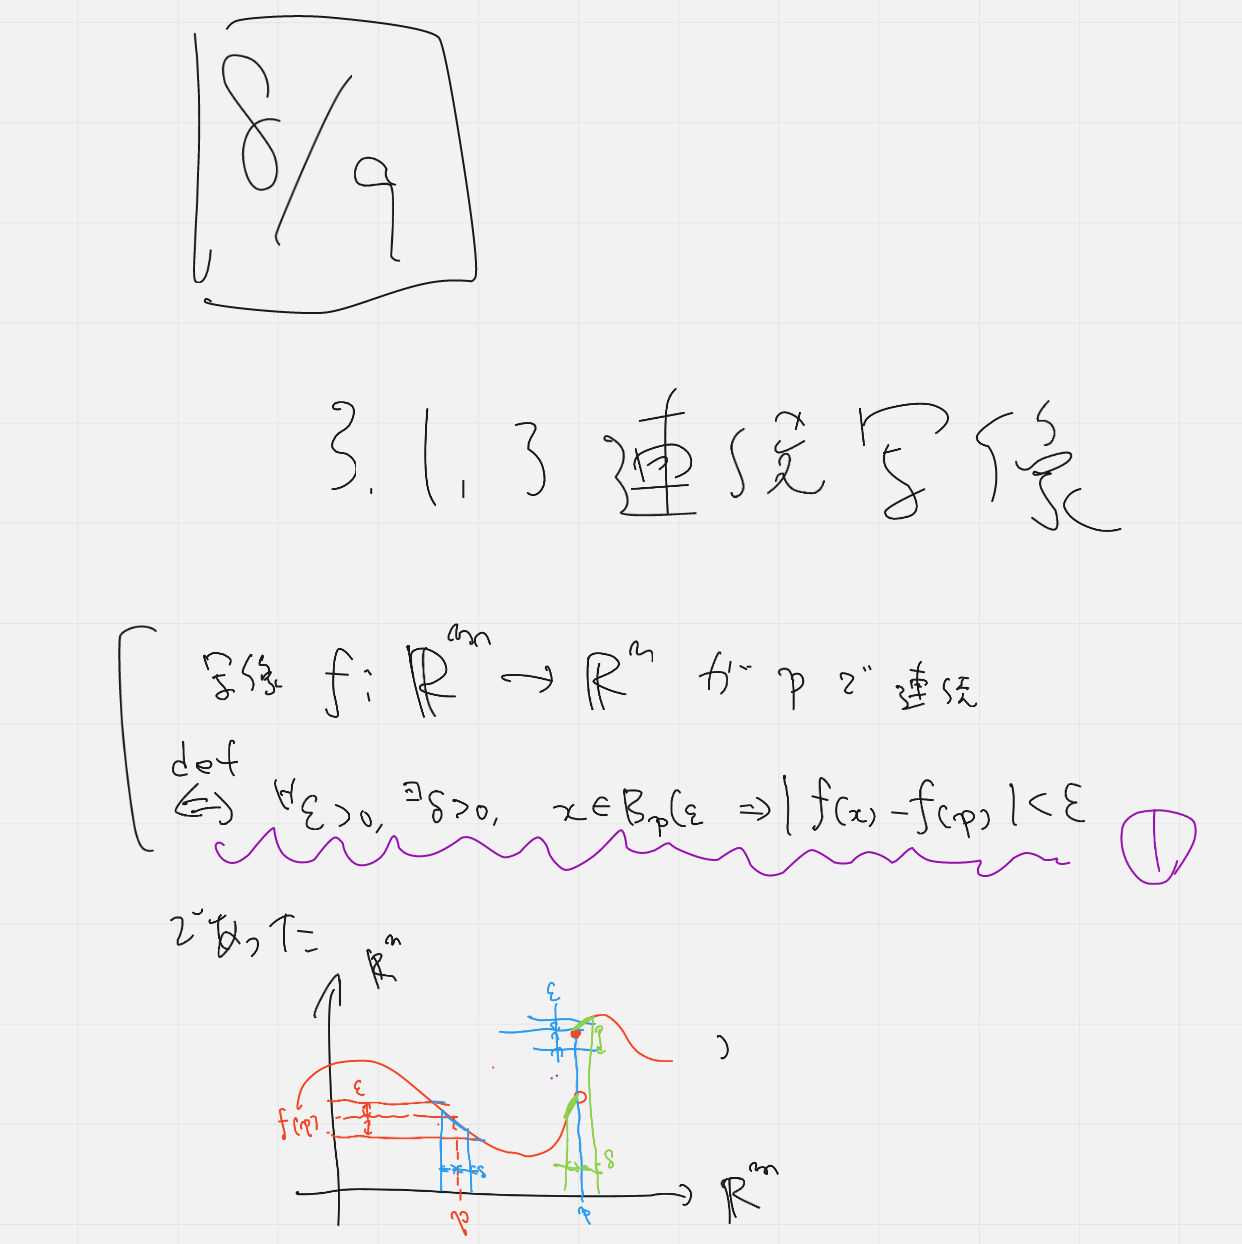 8/9
3.1.3 連続写像
写像 f: ℝᵐ → ℝⁿ が p で連続
def
⇔ ∀ε>0, ∃δ>0, x∈Bₚ(ε ⇒ |f(x)-f(p)|<ε ①
であった
ℝⁿ
ε
ε
f(p)
δ
δ
p
p
ℝᵐ